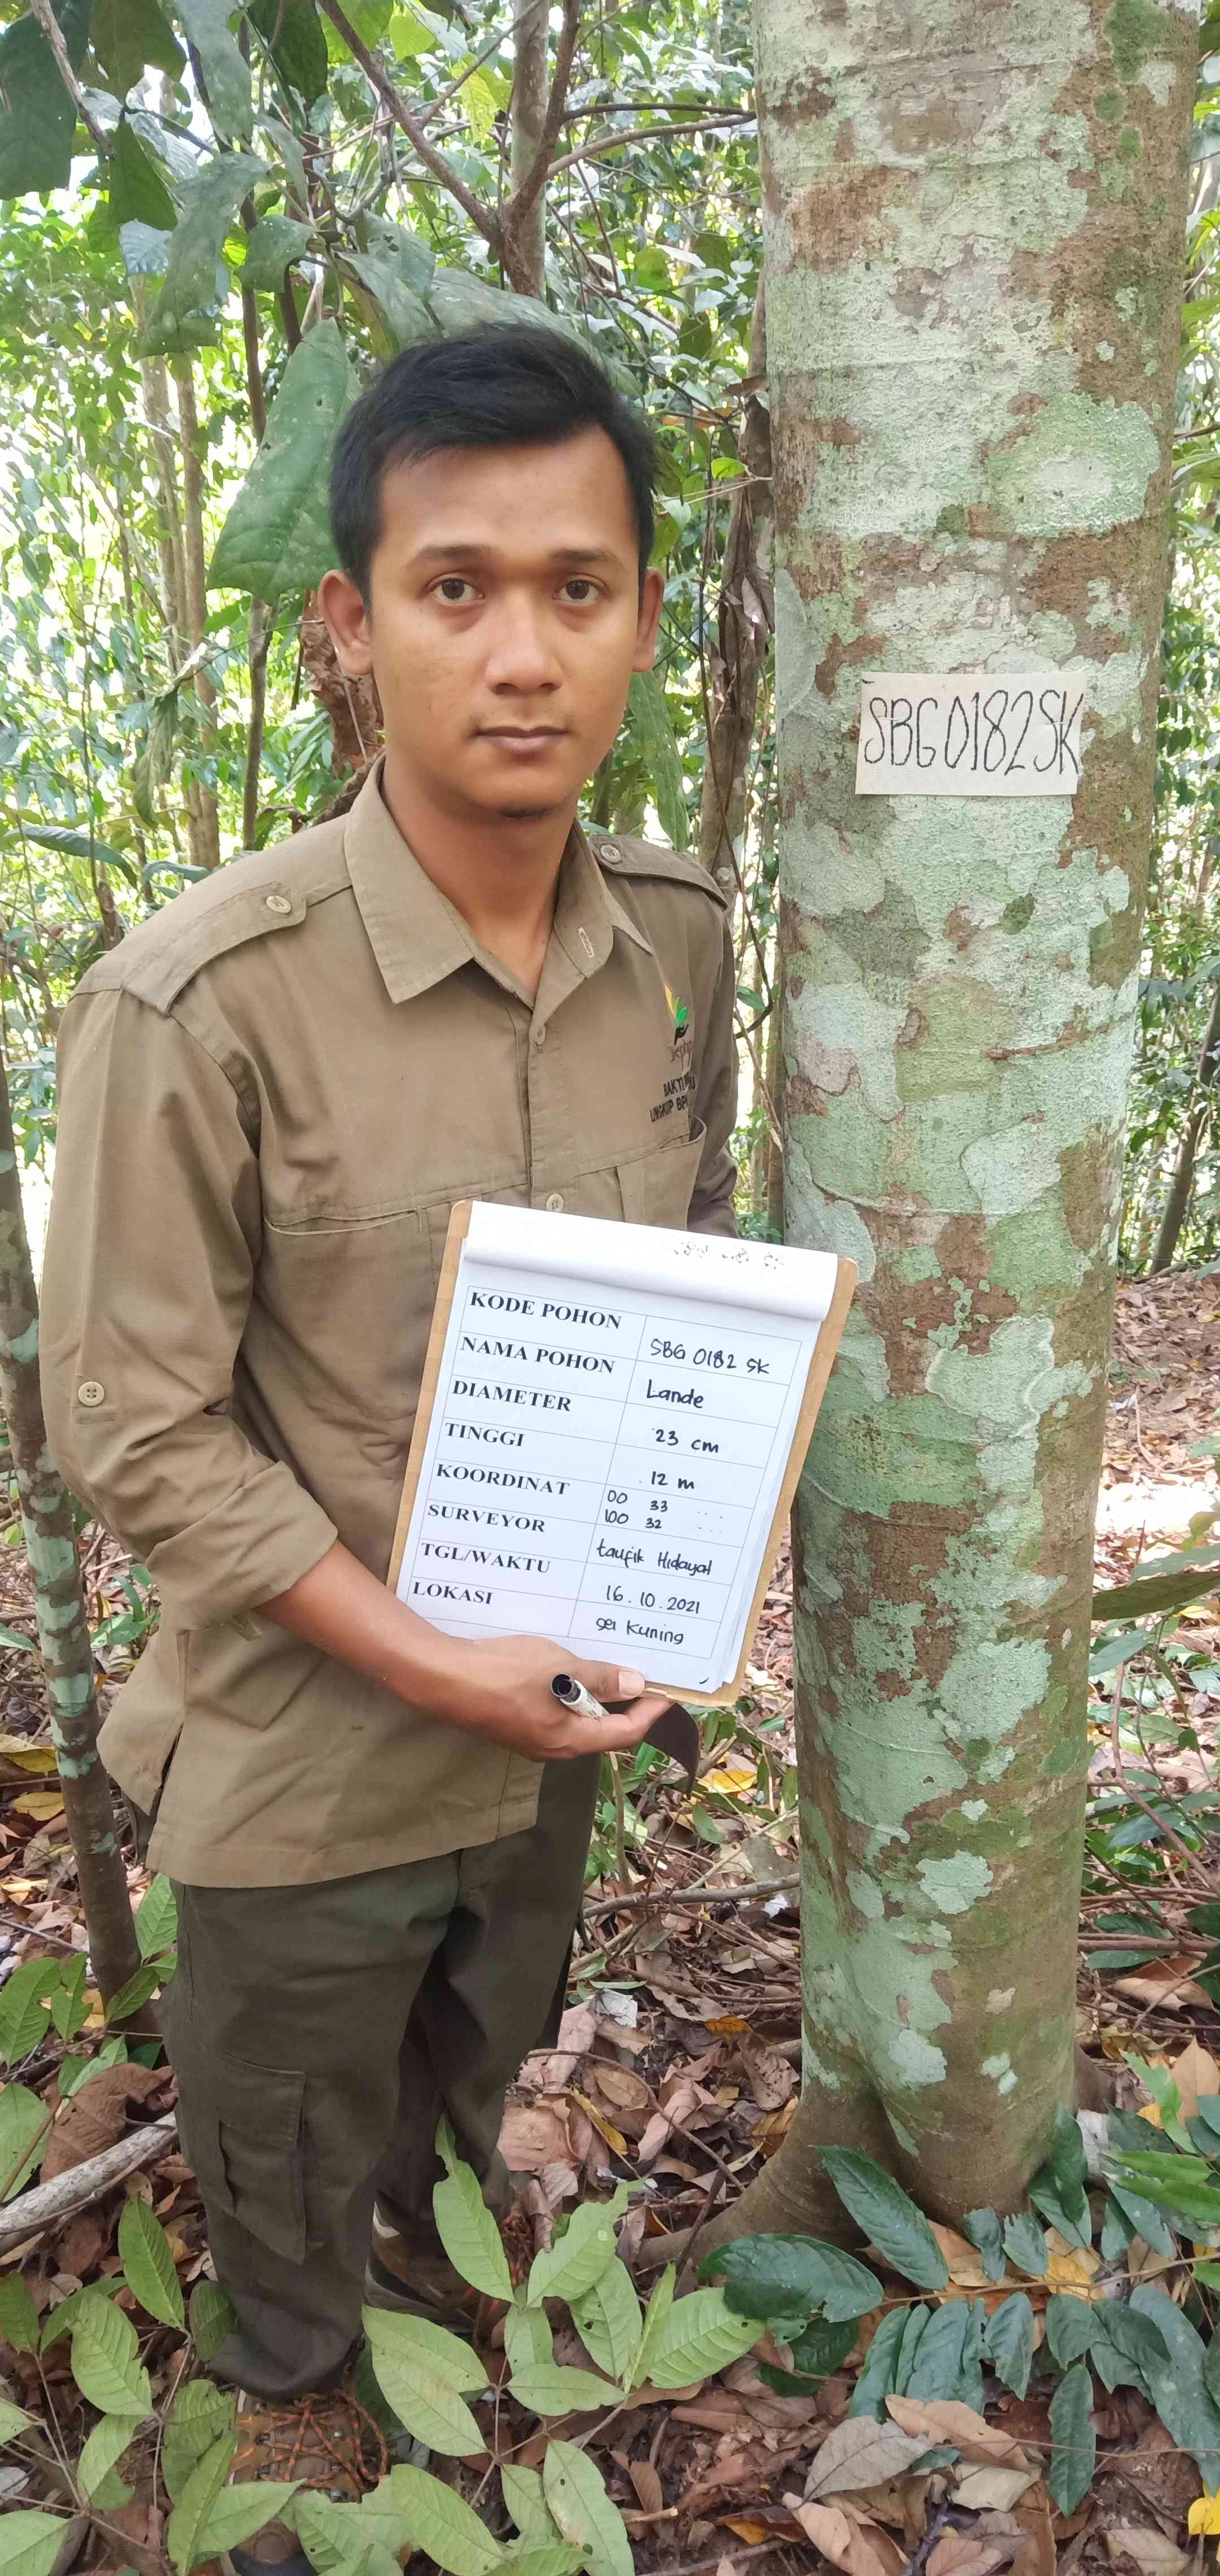 SBG0182SK
BAKTI
LINGKUP BP
KODE POHON SBG 0182 SK
NAMA POHON Lande
DIAMETER 23 cm
TINGGI 12 m
KOORDINAT 00 33 ...
100 32 ...
SURVEYOR taufik Hidayat
TGL/WAKTU 16.10.2021
LOKASI sei Kuning